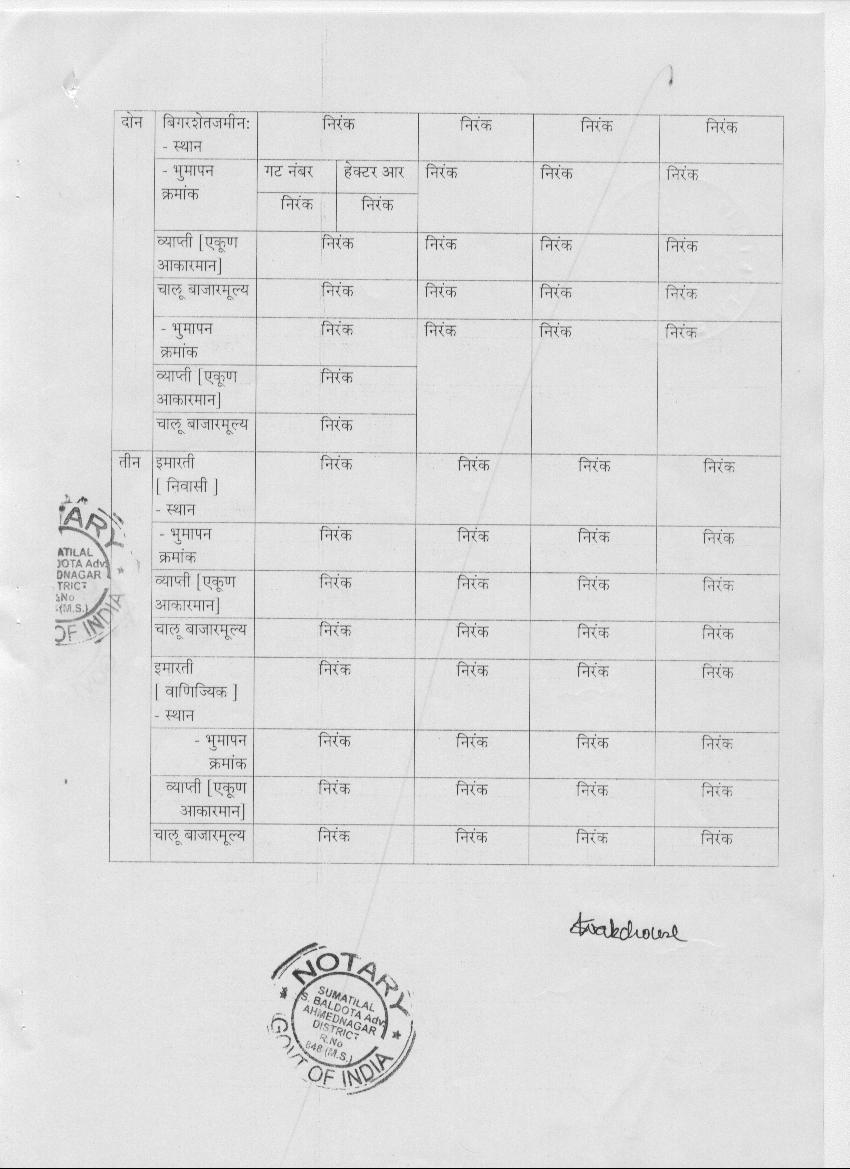 दोन बिगरशेतजमीन: निरंक निरंक निरंक निरंक
- स्थान
- भुमापन गट नंबर हेक्टर आर निरंक निरंक निरंक
क्रमांक निरंक निरंक
व्याप्ती [एकूण निरंक निरंक निरंक निरंक
आकारमान]
चालू बाजारमूल्य निरंक निरंक निरंक निरंक
- भुमापन निरंक निरंक निरंक निरंक
क्रमांक
व्याप्ती [एकूण निरंक
आकारमान]
चालू बाजारमूल्य निरंक
तीन इमारती निरंक निरंक निरंक निरंक
[ निवासी ]
- स्थान
- भुमापन निरंक निरंक निरंक निरंक
क्रमांक
व्याप्ती [एकूण निरंक निरंक निरंक निरंक
आकारमान]
चालू बाजारमूल्य निरंक निरंक निरंक निरंक
इमारती निरंक निरंक निरंक निरंक
[ वाणिज्यिक ]
- स्थान
- भुमापन निरंक निरंक निरंक निरंक
क्रमांक
व्याप्ती [एकूण निरंक निरंक निरंक निरंक
आकारमान]
चालू बाजारमूल्य निरंक निरंक निरंक निरंक
ARY
ATILAL
DOTA Adv.
DNAGAR
TRICT
(M.S.)
OF INDIA
NOTARY
SUMATILAL
S. BALDOTA Adv.
AHMEDNAGAR
DISTRICT
R.No
848 (M.S.)
GOVT OF INDIA